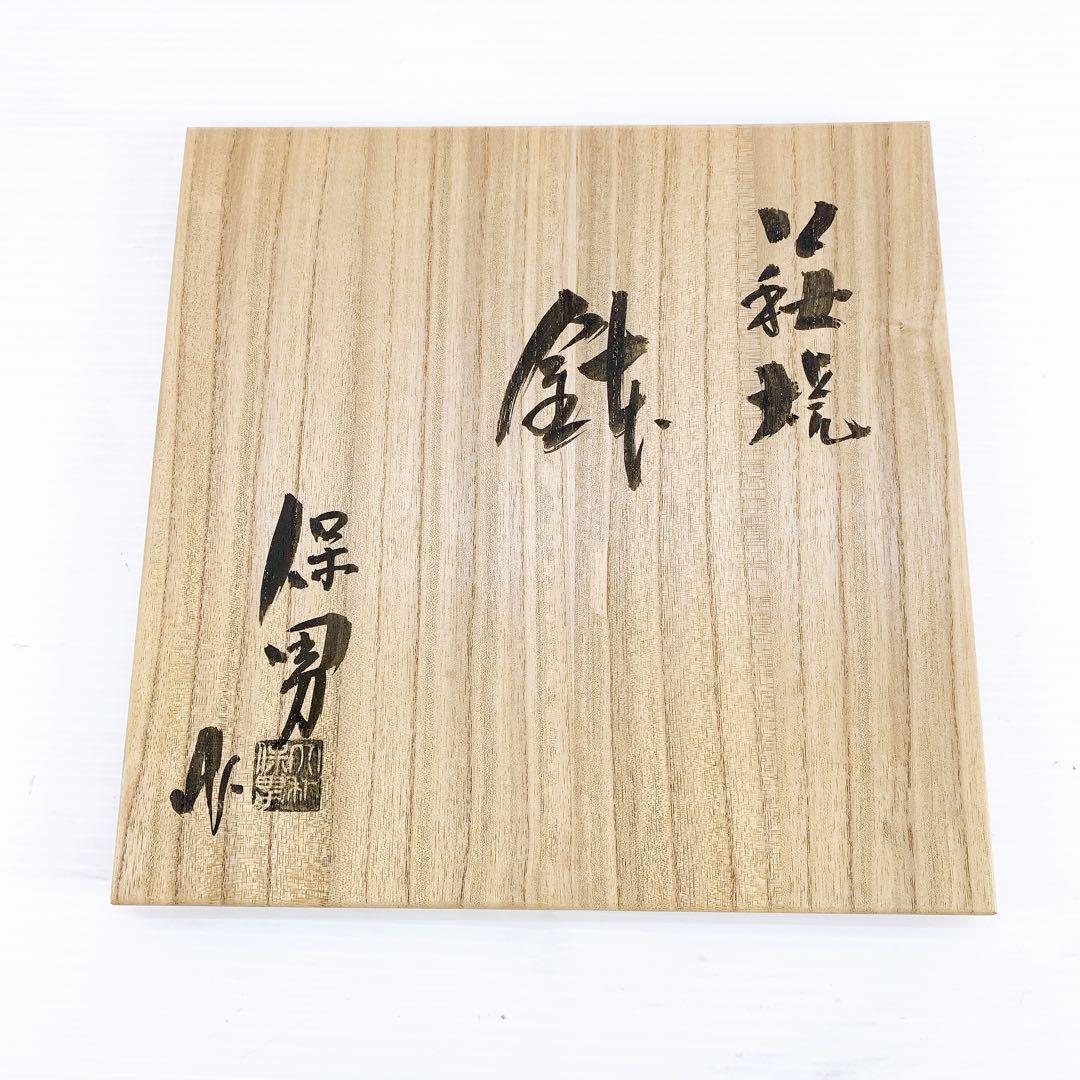 萩焼
鉢
保男
作